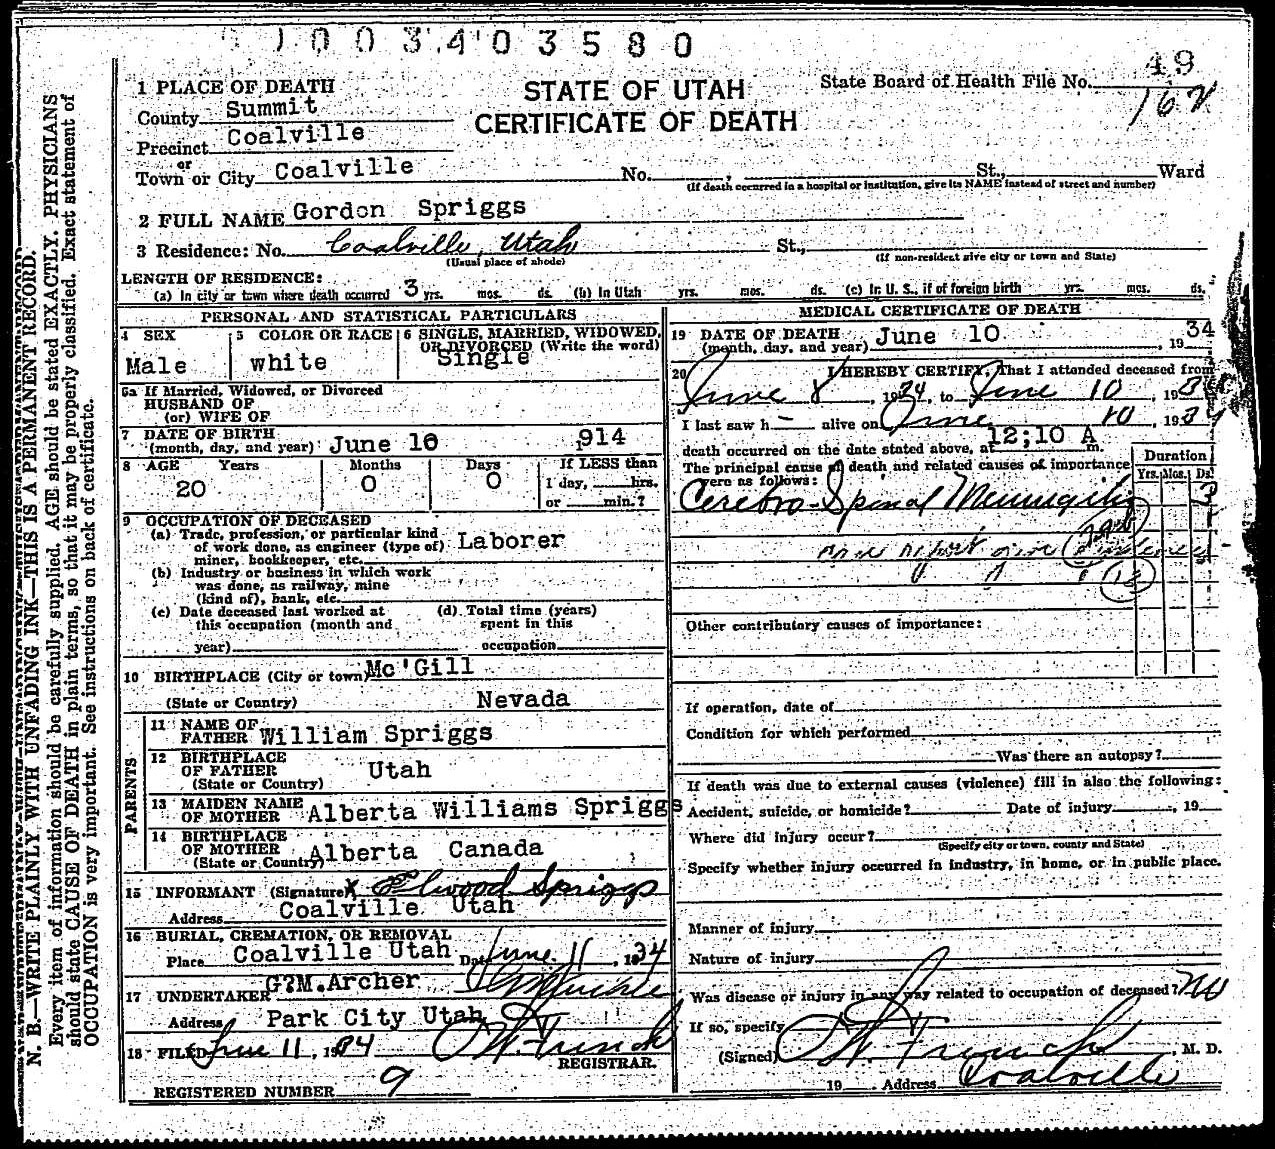 003403580
STATE OF UTAH
CERTIFICATE OF DEATH
State Board of Health File No. 49
162
1 PLACE OF DEATH
County Summit
Precinct Coalville
or
Town or City Coalville No. , St., Ward
(If death occurred in a hospital or institution, give its NAME instead of street and number)
2 FULL NAME Gordon Spriggs
3 Residence: No. Coalville, Utah St.,
(Usual place of abode) (If non-resident give city or town and State)
LENGTH OF RESIDENCE:
(a) In city or town where death occurred 3 yrs. mos. ds. (b) In Utah yrs. mos. ds. (c) In U. S., if of foreign birth yrs. mos. ds.
PERSONAL AND STATISTICAL PARTICULARS
4 SEX
Male
5 COLOR OR RACE
white
6 SINGLE, MARRIED, WIDOWED,
OR DIVORCED (Write the word)
Single
6a If Married, Widowed, or Divorced
HUSBAND OF
(or) WIFE OF
7 DATE OF BIRTH
(month, day, and year) June 10 1914
8 AGE Years Months Days If LESS than
20 0 0 1 day, hrs.
or min.?
9 OCCUPATION OF DECEASED
(a) Trade, profession, or particular kind
of work done, as engineer (type of)
miner, bookkeeper, etc. Laborer
(b) Industry or business in which work
was done, as railway, mine
(kind of), bank, etc.
(c) Date deceased last worked at
this occupation (month and
year)
(d) Total time (years)
spent in this
occupation
10 BIRTHPLACE (City or town) Mc'Gill
(State or Country) Nevada
PARENTS
11 NAME OF
FATHER William Spriggs
12 BIRTHPLACE
OF FATHER Utah
(State or Country)
13 MAIDEN NAME
OF MOTHER Alberta Williams Spriggs
14 BIRTHPLACE
OF MOTHER
(State or Country) Alberta Canada
15 INFORMANT (Signature) X Elwood Spriggs
Address Coalville Utah
16 BURIAL, CREMATION, OR REMOVAL
Place Coalville Utah Date June 11, 1934
17 UNDERTAKER G?M.Archer
Address Park City Utah
18 FILED June 11, 1934
REGISTRAR.
REGISTERED NUMBER 9
MEDICAL CERTIFICATE OF DEATH
19 DATE OF DEATH
(month, day, and year) June 10 , 1934
20 I HEREBY CERTIFY, That I attended deceased from
June 8, 1934, to June 10, 193
I last saw h alive on June 10, 193
death occurred on the date stated above, at 12;10 A m.
The principal cause of death and related causes of importance
were as follows:
Duration
Yrs. Mos. Ds.
Cerebro-Spinal Meningitis 3
Other contributory causes of importance:
If operation, date of
Condition for which performed
Was there an autopsy?
If death was due to external causes (violence) fill in also the following:
Accident, suicide, or homicide? Date of injury , 19
Where did injury occur?
(Specify city or town, county and State)
Specify whether injury occurred in industry, in home, or in public place.
Manner of injury
Nature of injury
Was disease or injury in any way related to occupation of deceased? No
If so, specify
(Signed) French, M. D.
19 Address Coalville
N. B.—WRITE PLAINLY WITH UNFADING INK—THIS IS A PERMANENT RECORD.
Every item of information should be carefully supplied. AGE should be stated EXACTLY. PHYSICIANS
should state CAUSE OF DEATH in plain terms, so that it may be properly classified. Exact statement of
OCCUPATION is very important. See instructions on back of certificate.